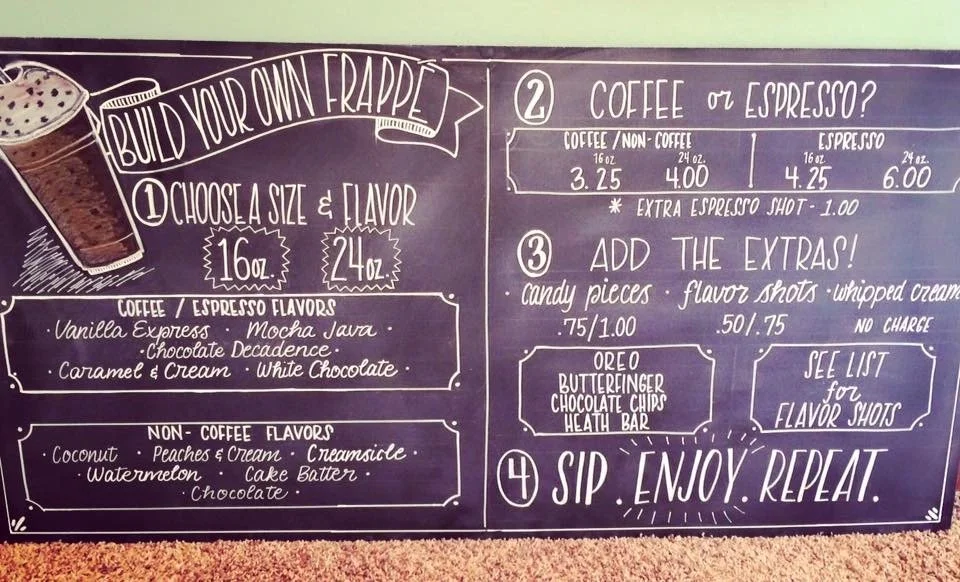 BUILD YOUR OWN FRAPPÉ
1 CHOOSE A SIZE & FLAVOR
16oz. 24oz.
COFFEE / ESPRESSO FLAVORS
· Vanilla Express · Mocha Java ·
· Chocolate Decadence ·
· Caramel & Cream · White Chocolate ·
NON-COFFEE FLAVORS
· Coconut · Peaches & Cream · Creamsicle ·
· Watermelon · Cake Batter ·
· Chocolate ·
2 COFFEE or ESPRESSO?
COFFEE / NON-COFFEE ESPRESSO
16oz 24oz. 16oz 24oz.
3.25 4.00 4.25 6.00
* EXTRA ESPRESSO SHOT - 1.00
3 ADD THE EXTRAS!
· candy pieces · flavor shots · whipped cream
.75/1.00 .50/.75 NO CHARGE
OREO
BUTTERFINGER
CHOCOLATE CHIPS
HEATH BAR
SEE LIST
for
FLAVOR SHOTS
4 SIP. ENJOY. REPEAT.